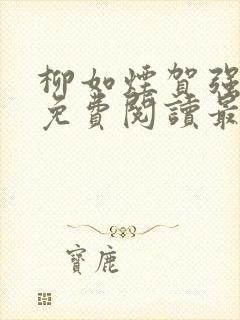 柳如煙賀強
免費閱讀最
寶鹿